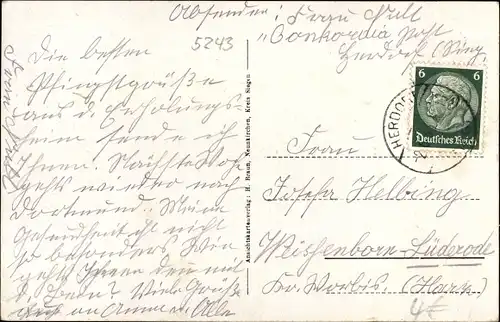 Absender: Frau Null
"Conkordia Post
Herdorf (Sieg)
5243
Die besten
Pfingstgrüße
aus d. Erholungs-
heim sende ich
Ihnen. Nächste Woche
gehts wieder nach
Dortmund. Meine
Gesundheit ist nicht
so besonders. Wie
gehts Ihnen denn mit
d. Bein? Viele Grüße
auch an Ammer. Alle
Ansichtskartenverlag: H. Braun, Neunkirchen, Kreis Siegen
6 6
Deutsches Reich
HERDORF
Frau
Josefa Helbing
Weißenborn-Lüderode
Kr. Worbis. (Harz)
4€